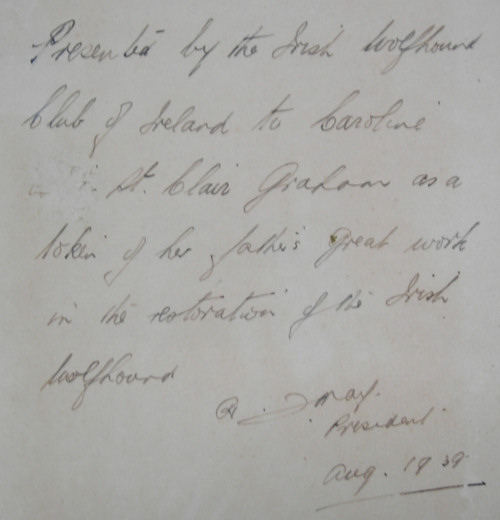 Presented by the Irish Wolfhound
Club of Ireland to Caroline
St. Clair Graham as a
token of her father's great work
in the restoration of the Irish
Wolfhound
May.
President.
Aug. 1939